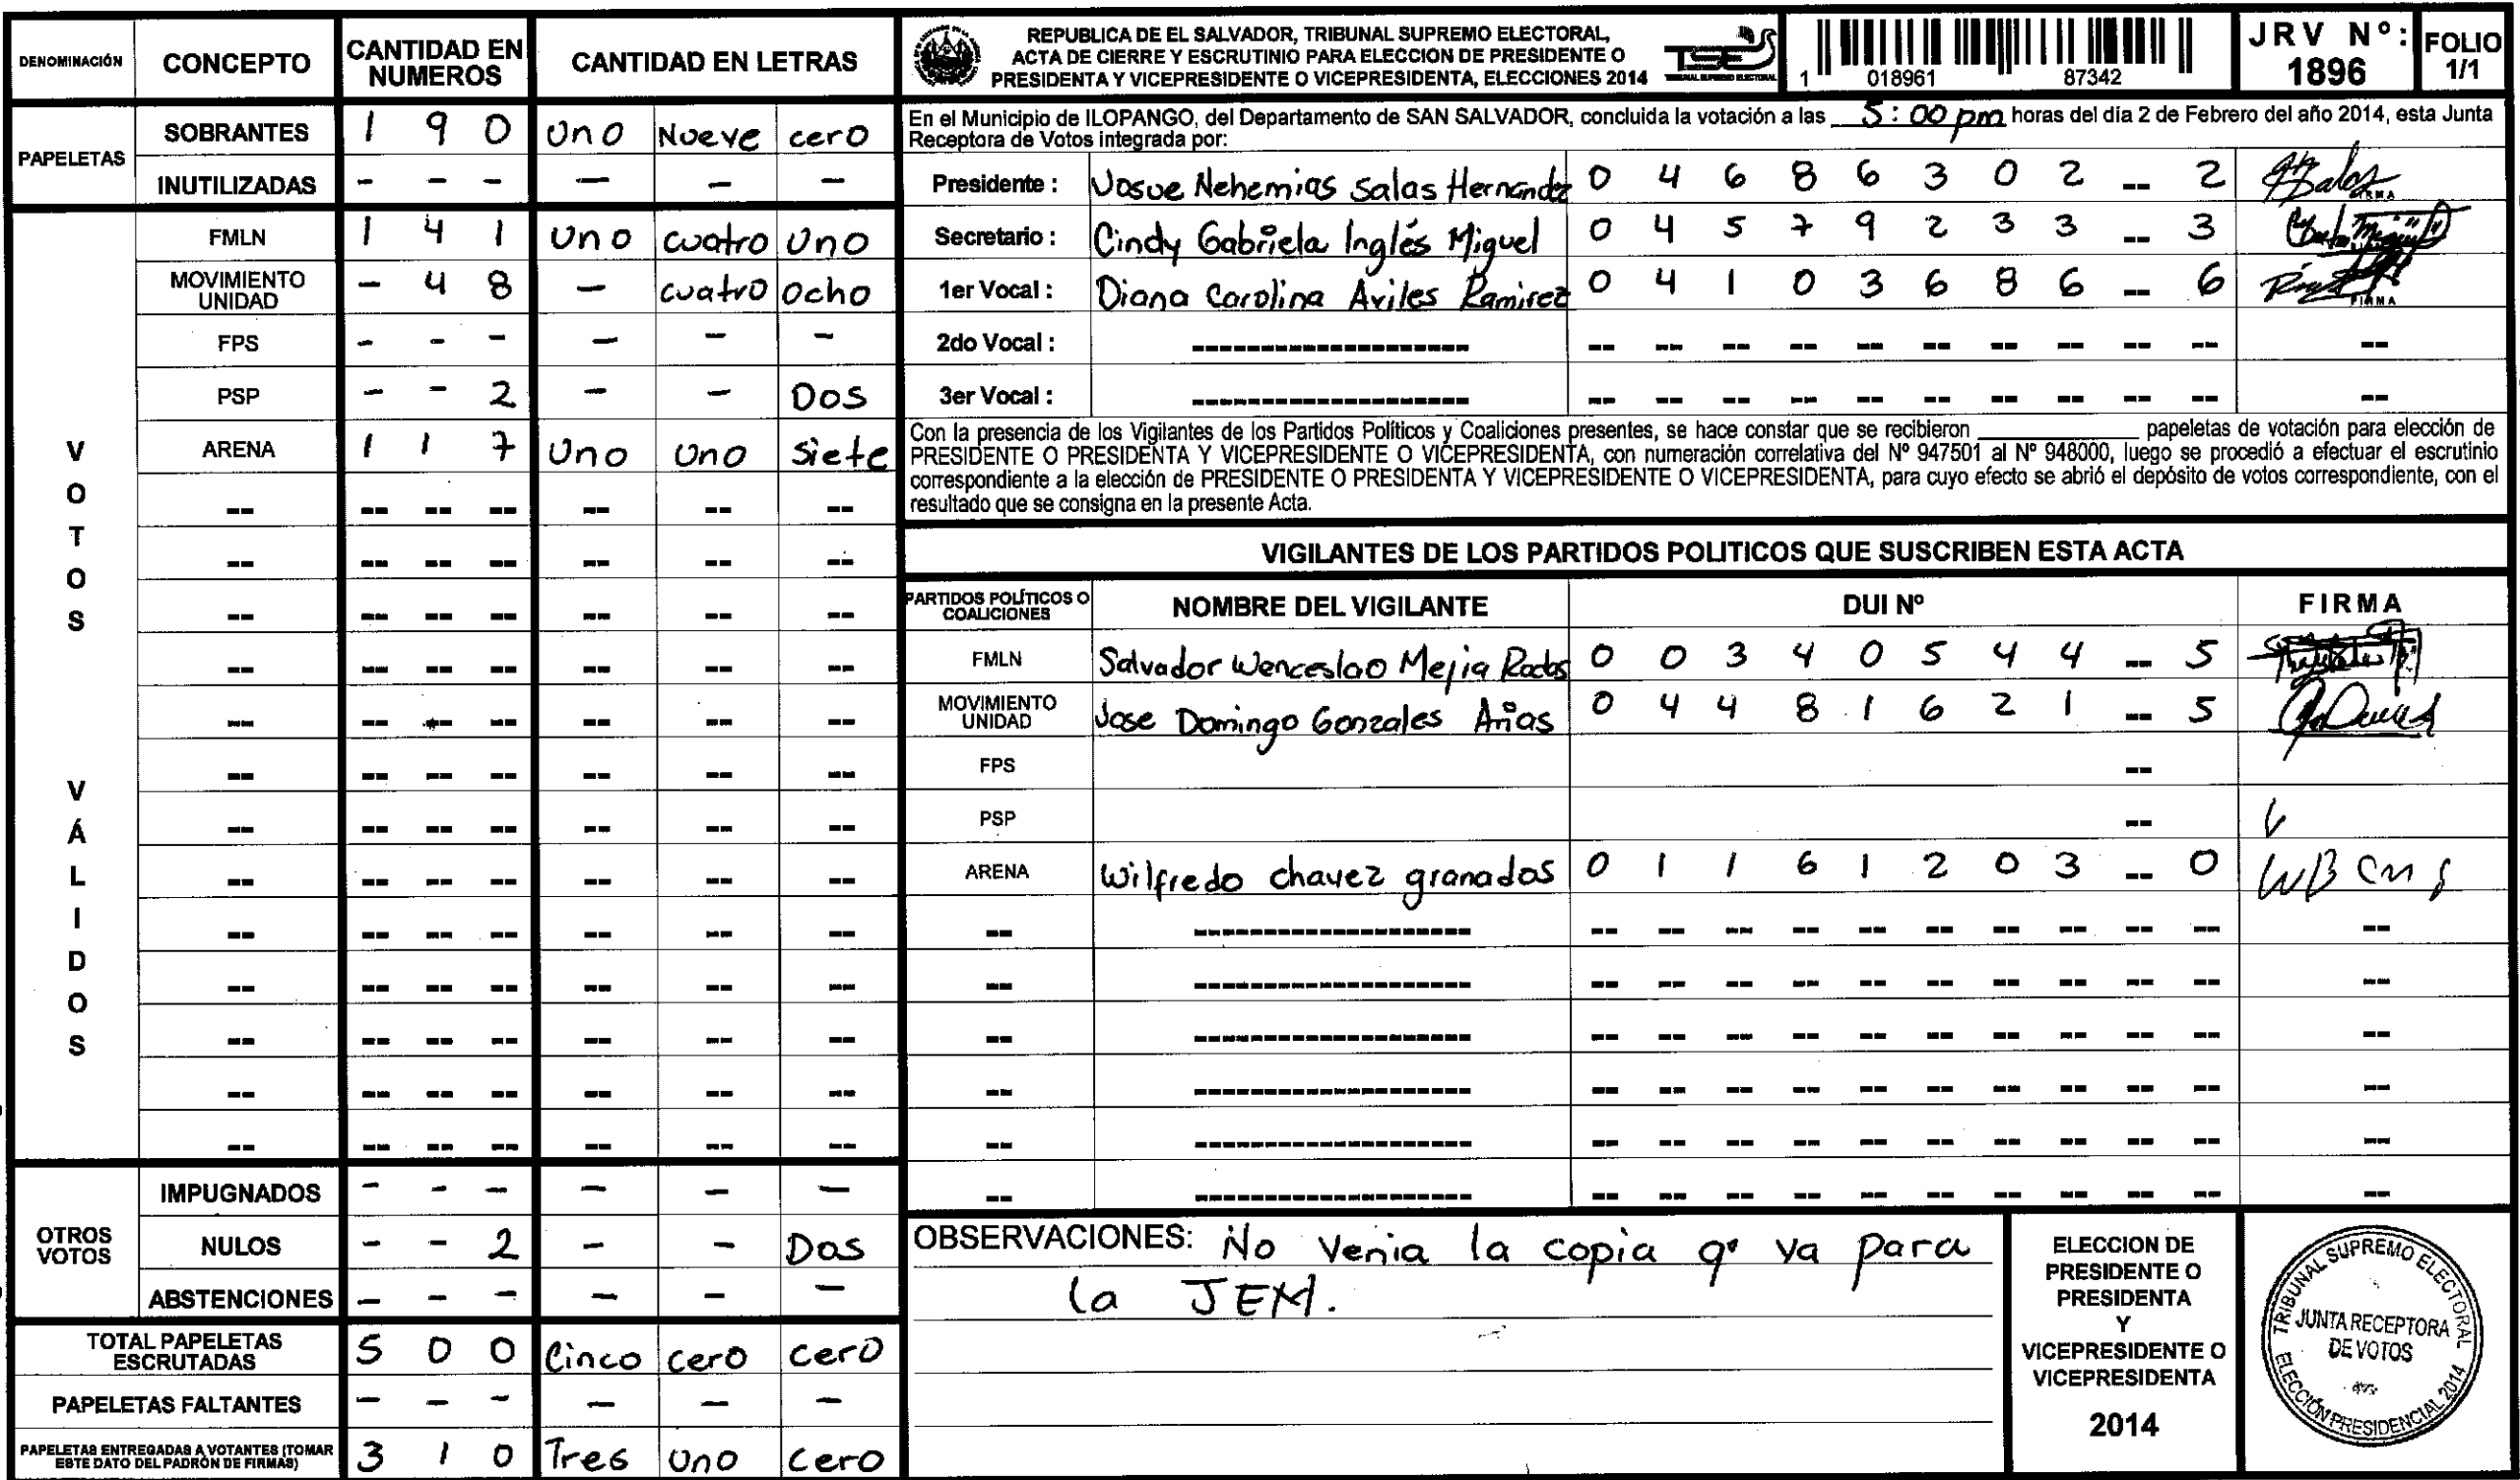 DENOMINACIÓN CONCEPTO CANTIDAD EN NUMEROS CANTIDAD EN LETRAS
PAPELETAS
SOBRANTES 1 9 0 Uno Nueve cero
INUTILIZADAS - - - - - -
VOTOS VÁLIDOS
FMLN 1 4 1 Uno cuatro Uno
MOVIMIENTO UNIDAD - 4 8 - cuatro Ocho
FPS - - - - - -
PSP - - 2 - - Dos
ARENA 1 1 7 Uno Uno Siete
-- -- -- -- -- -- --
-- -- -- -- -- -- --
-- -- -- -- -- -- --
-- -- -- -- -- -- --
-- -- -- -- -- -- --
-- -- -- -- -- -- --
-- -- -- -- -- -- --
-- -- -- -- -- -- --
-- -- -- -- -- -- --
-- -- -- -- -- -- --
-- -- -- -- -- -- --
-- -- -- -- -- -- --
-- -- -- -- -- -- --
OTROS VOTOS
IMPUGNADOS - - - - - -
NULOS - - 2 - - Dos
ABSTENCIONES - - - - - -
TOTAL PAPELETAS ESCRUTADAS 5 0 0 Cinco cero cero
PAPELETAS FALTANTES - - - - - -
PAPELETAS ENTREGADAS A VOTANTES (TOMAR ESTE DATO DEL PADRÓN DE FIRMAS) 3 1 0 Tres Uno cero
REPUBLICA DE EL SALVADOR, TRIBUNAL SUPREMO ELECTORAL,
ACTA DE CIERRE Y ESCRUTINIO PARA ELECCION DE PRESIDENTE O
PRESIDENTA Y VICEPRESIDENTE O VICEPRESIDENTA, ELECCIONES 2014
TSE
TRIBUNAL SUPREMO ELECTORAL
1 018961 87342
JRV Nº: 1896
FOLIO 1/1
En el Municipio de ILOPANGO, del Departamento de SAN SALVADOR, concluida la votación a las 5:00 pm horas del día 2 de Febrero del año 2014, esta Junta
Receptora de Votos integrada por:
Presidente : Josue Nehemias Salas Hernandez 0 4 6 8 6 3 0 2 -- 2
Secretario : Cindy Gabriela Inglés Miguel 0 4 5 7 9 2 3 3 -- 3
1er Vocal : Diana Carolina Aviles Ramirez 0 4 1 0 3 6 8 6 -- 6 FIRMA
2do Vocal : -------------------- -- -- -- -- -- -- -- -- -- -- --
3er Vocal : -------------------- -- -- -- -- -- -- -- -- -- -- --
Con la presencia de los Vigilantes de los Partidos Políticos y Coaliciones presentes, se hace constar que se recibieron ________ papeletas de votación para elección de
PRESIDENTE O PRESIDENTA Y VICEPRESIDENTE O VICEPRESIDENTA, con numeración correlativa del Nº 947501 al Nº 948000, luego se procedió a efectuar el escrutinio
correspondiente a la elección de PRESIDENTE O PRESIDENTA Y VICEPRESIDENTE O VICEPRESIDENTA, para cuyo efecto se abrió el depósito de votos correspondiente, con el
resultado que se consigna en la presente Acta.
VIGILANTES DE LOS PARTIDOS POLITICOS QUE SUSCRIBEN ESTA ACTA
PARTIDOS POLÍTICOS O COALICIONES NOMBRE DEL VIGILANTE DUI Nº FIRMA
FMLN Salvador Wenceslao Mejia 0 0 3 4 0 5 4 4 -- 5
MOVIMIENTO UNIDAD Jose Domingo Gonzales Arias 0 4 4 8 1 6 2 1 -- 5
FPS --
PSP --
ARENA Wilfredo chavez granados 0 1 1 6 1 2 0 3 -- 0
-- -------------------- -- -- -- -- -- -- -- -- -- -- --
-- -------------------- -- -- -- -- -- -- -- -- -- -- --
-- -------------------- -- -- -- -- -- -- -- -- -- -- --
-- -------------------- -- -- -- -- -- -- -- -- -- -- --
-- -------------------- -- -- -- -- -- -- -- -- -- -- --
-- -------------------- -- -- -- -- -- -- -- -- -- -- --
OBSERVACIONES: No Venia la copia q' va para
la JEM.
ELECCION DE
PRESIDENTE O
PRESIDENTA
Y
VICEPRESIDENTE O
VICEPRESIDENTA
2014
TRIBUNAL SUPREMO ELECTORAL
JUNTA RECEPTORA
DE VOTOS
ELECCIÓN PRESIDENCIAL 2014